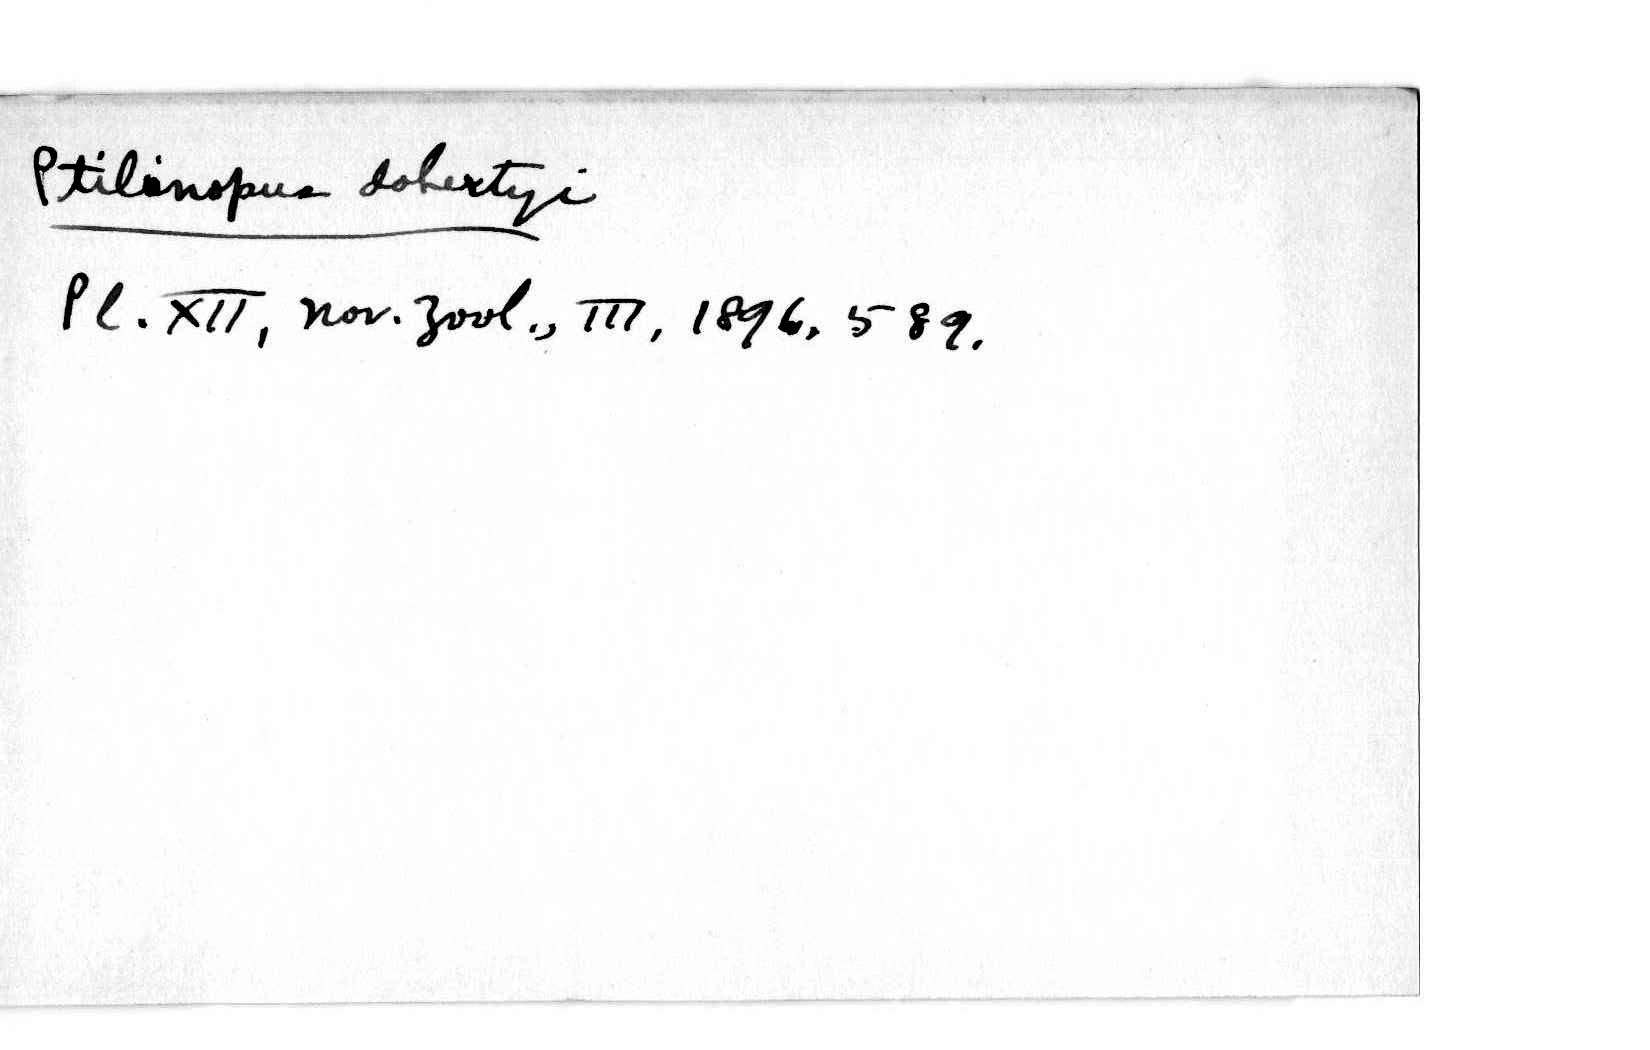 Ptilinopus dohertyi
Pl. XII, Nov. Zool., III, 1896, 589.